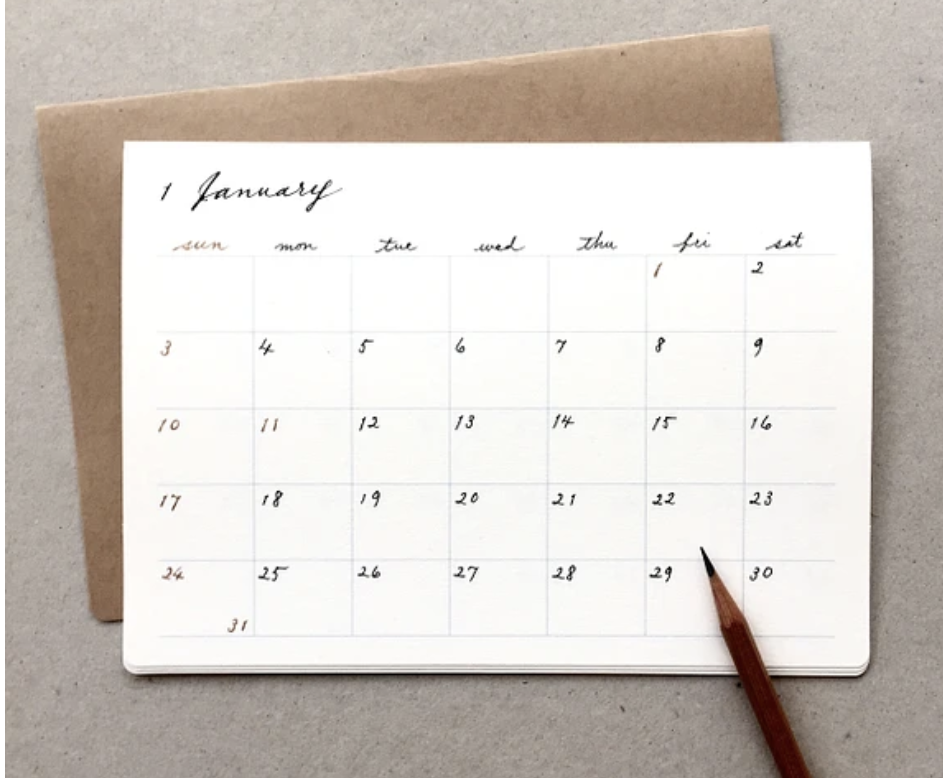 1 January
sun mon tue wed thu fri sat
1 2
3 4 5 6 7 8 9
10 11 12 13 14 15 16
17 18 19 20 21 22 23
24 25 26 27 28 29 30
31